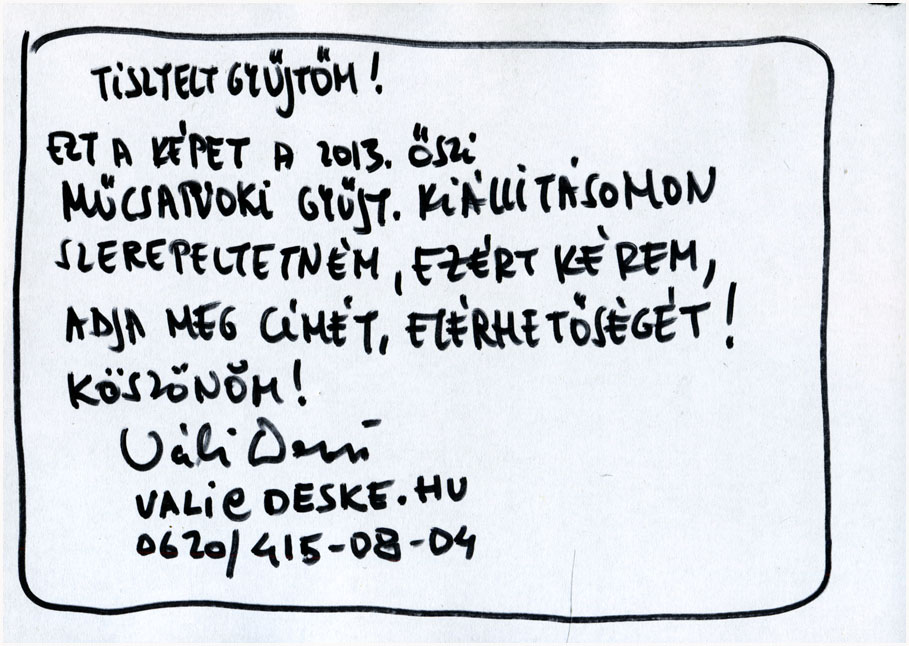 TISZTELT GYŰJTŐM!
EZT A KÉPET A 2013. ŐSZI
MŰCSARNOKI GYŰJT. KIÁLLÍTÁSOMON
SZEREPELTETNÉM, EZÉRT KÉREM,
ADJA MEG CÍMÉT, ELÉRHETŐSÉGÉT!
KÖSZÖNÖM!
Váli Dezső
VALI@DESKE.HU
0620/415-08-04